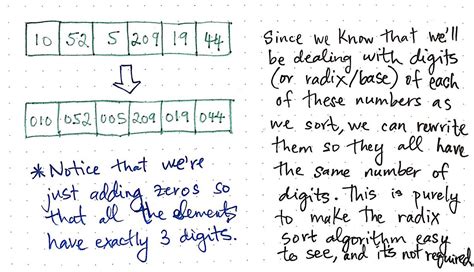 10 52 5 209 19 44
010 052 005 209 019 044
* Notice that we're
just adding zeros so
that all the elements
have exactly 3 digits.
Since we know that we'll
be dealing with digits
(or radix/base) of each
of these numbers as
we sort, we can rewrite
them so they all have
the same number of
digits. This is purely
to make the radix
sort algorithm easy
to see, and it's not required.